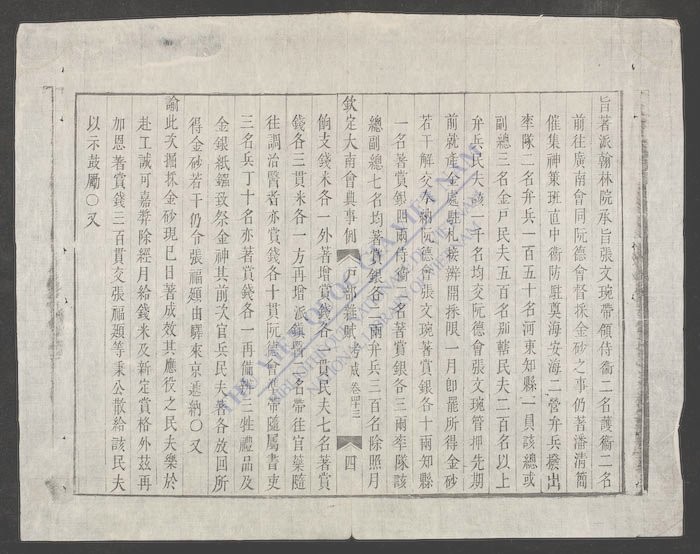 旨著派翰林院承旨張文琬帶領侍衞二名護衞二名
前往廣南會同阮德會督採金砂之事仍著潘清簡
催集神策班直中衞防駐奠海安海二營弁兵撥出
率隊二名弁兵一百五十名河東知縣一員該總或
副總三名金戸民夫五百名別轄民夫二百名以上
弁兵民夫該一千名均交阮德會張文琬管押先期
前就產金處駐札接辦開採限一月卽罷所得金砂
若干解交本納阮德會張文琬著賞銀各十兩知縣
一名著賞銀四兩侍衞二名著賞銀各三兩率隊該
總副總七名均著賞銀各二兩弁兵三百名除照月
欽定大南會典事例 戸部雜賦 卷四十三 四
餉支錢米各一外著增賞錢各一貫民夫七名著賞
錢各三貫米各一方再增派鎮醫二名帶往官藥隨
往調治醫者亦賞錢各十貫阮德會準帶隨屬書吏
三名兵丁十名亦著賞錢各一再備辦三牲禮品及
金銀紙鏹致祭金神其前次官兵民夫著各放回所
得金砂若干仍令張福頲由驛來京遞納○又
諭此次掘採金砂現已日著成效其應役之民夫樂於
赴工誠可嘉弊除經月給錢米及新定賞格外茲再
加恩著賞錢三百貫交張福頲等秉公散給該民夫
以示鼓勵○又
THƯ VIỆN QUỐC GIA VIỆT NAM
NATIONAL LIBRARY OF VIETNAM